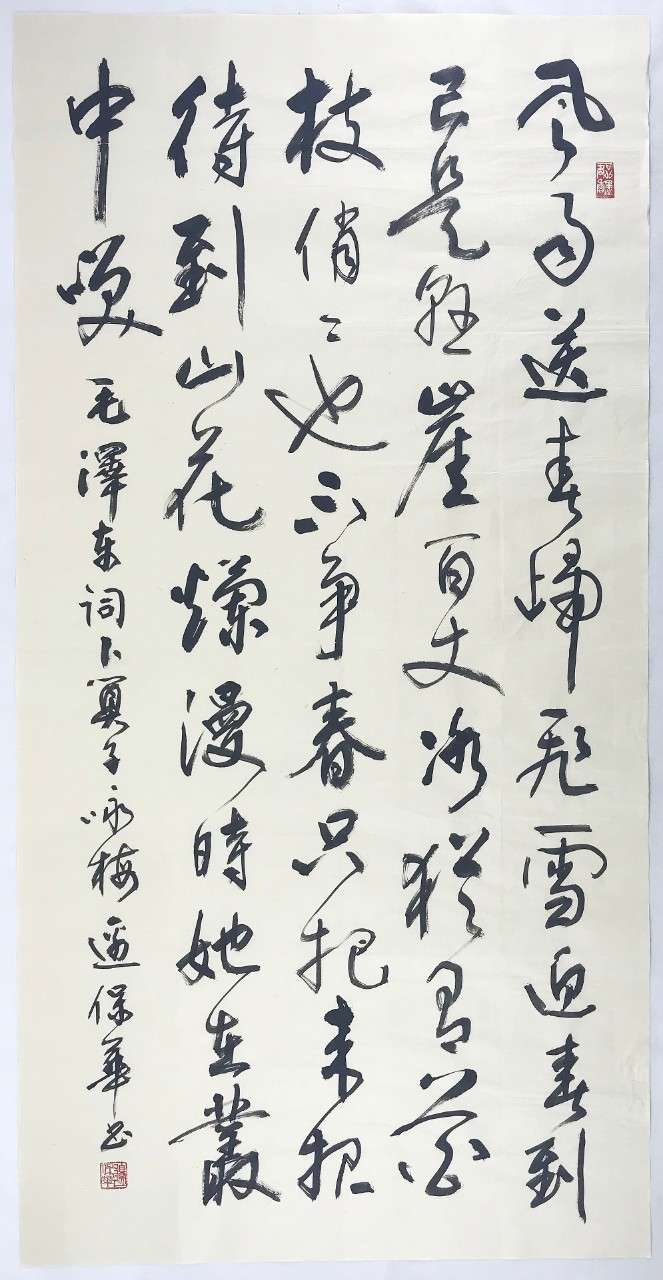 风雨送春歸飛雪迎春到
已是懸崖百丈冰猶有花
枝俏〻也不争春只把春报
待到山花爛漫時她在叢
中笑
毛澤东詞卜算子咏梅 保華书